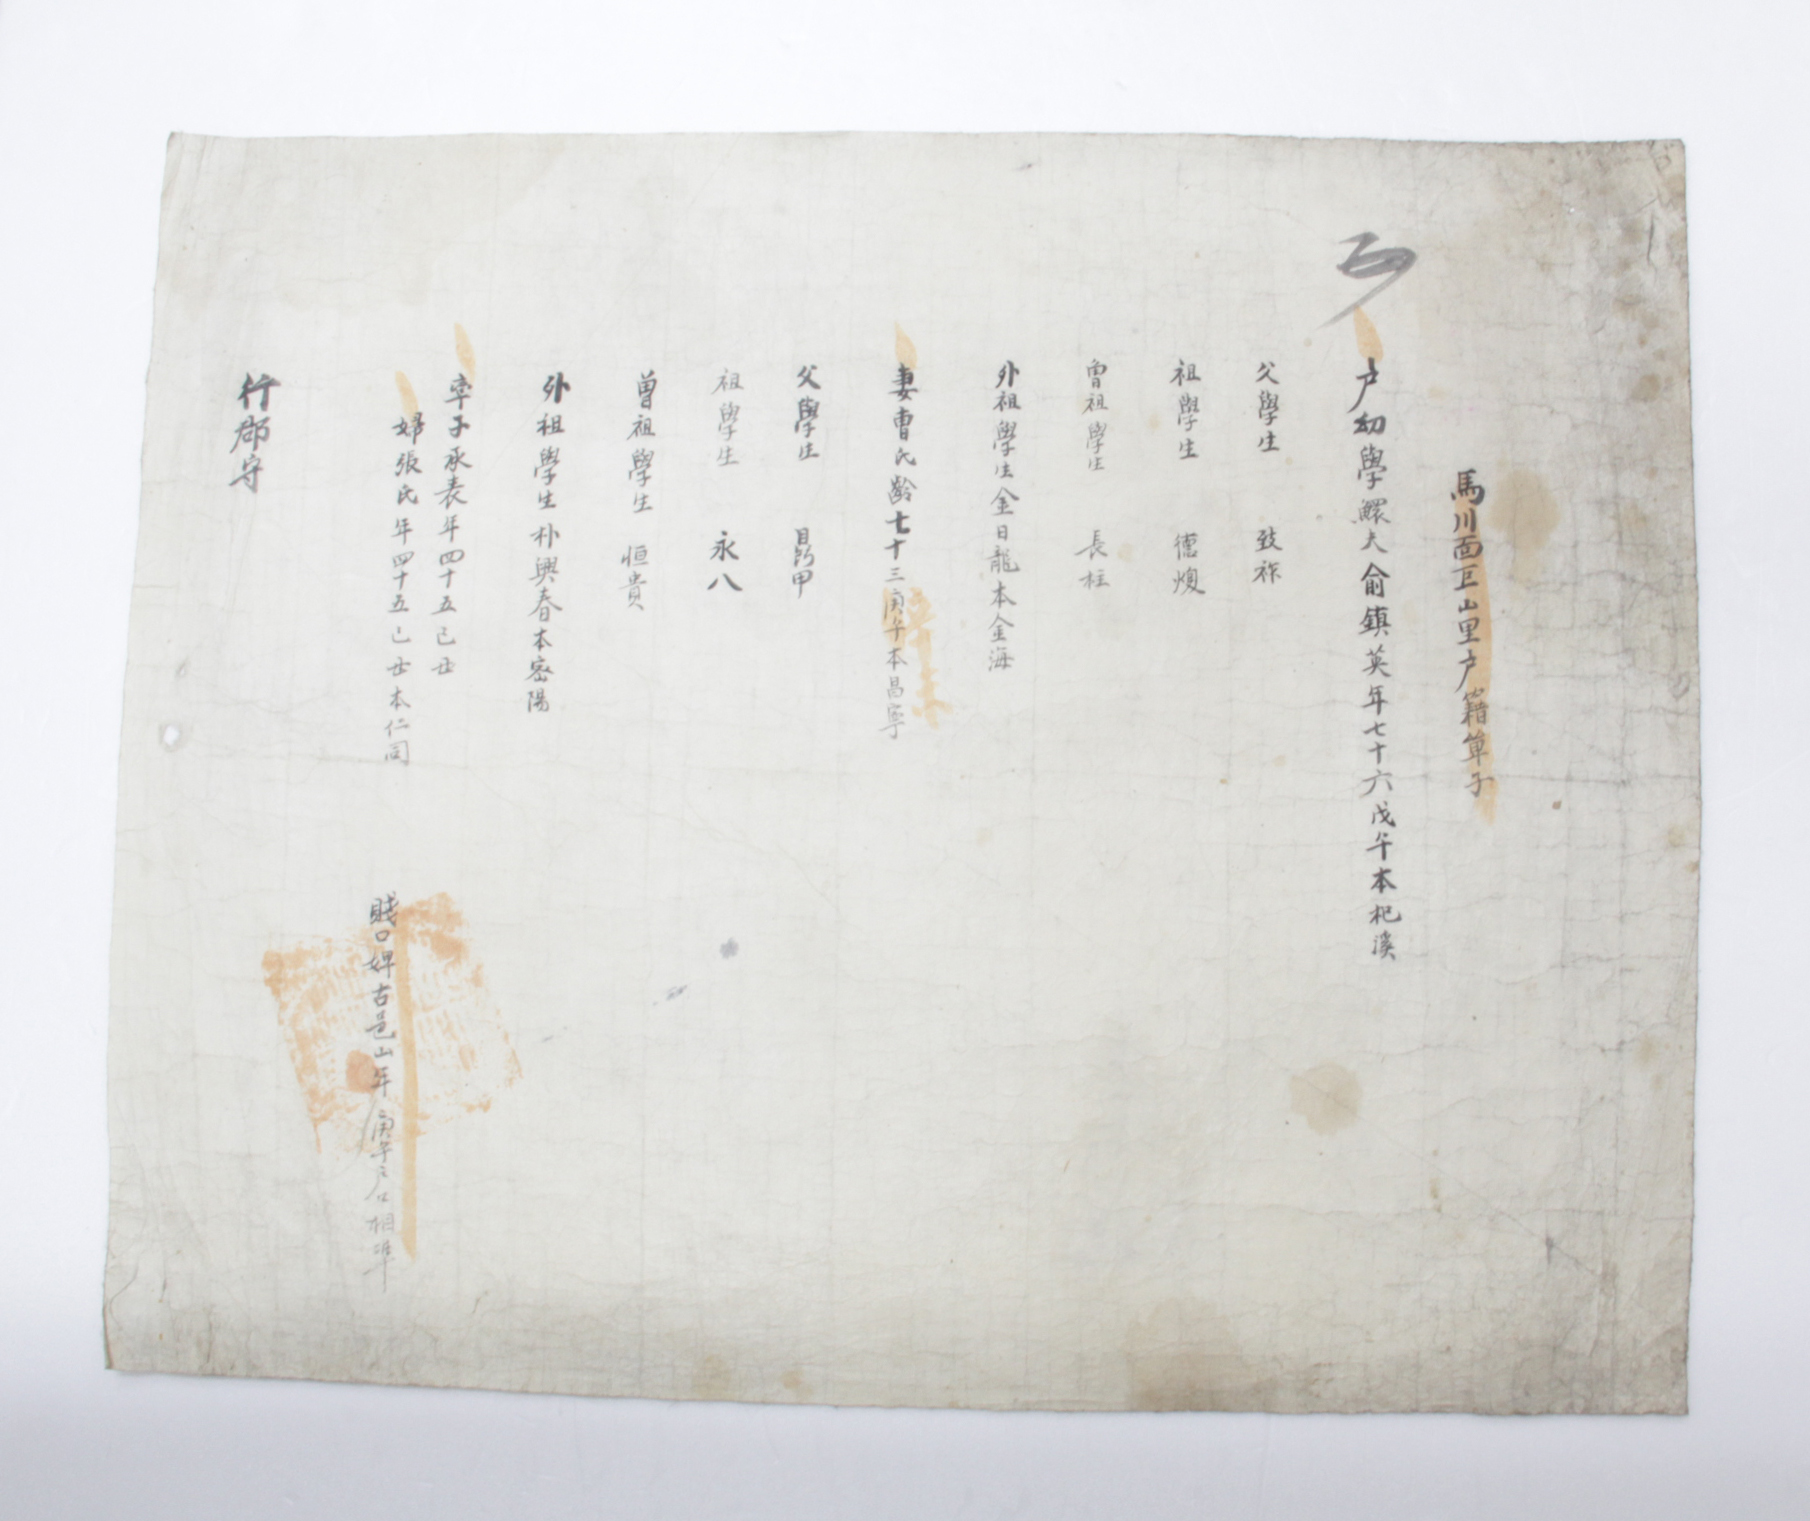 馬川面巨山里戶籍單子
戶幼學鰥夫俞鎮英年七十六戊午本杞溪
父學生 致祚
祖學生 德煥
曾祖學生 長柱
外祖學生金日龍本金海
妻曺氏齡七十三庚午本昌寧
父學生 甲
祖學生 永八
曾祖學生 恒貴
外祖學生朴興春本密陽
率子承表年四十五己丑
婦張氏年四十五己丑本仁同
賤口婢古邑山年庚午戶口相準
行郡守